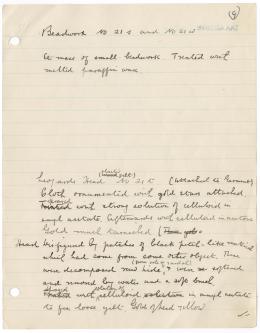 (9)
Beadwork No 21 s and No 21 w
A mass of small beadwork. Treated with
melted paraffin wax.
Leopards Head No 21 t (attached to Garment)
Cloth ornamented with gold stars attached
with strong solution of celluloid in
amyl acetate. Afterwards with celluloid in acetone
Gold much tarnished
Head disfigured by patches of black pitch-like material
which had come from some other object. These
were decomposed hide, & were softened
and removed by water and a soft brush
with celluloid solution in amyl acetate
to fix loose gilt. Gold of head yellow